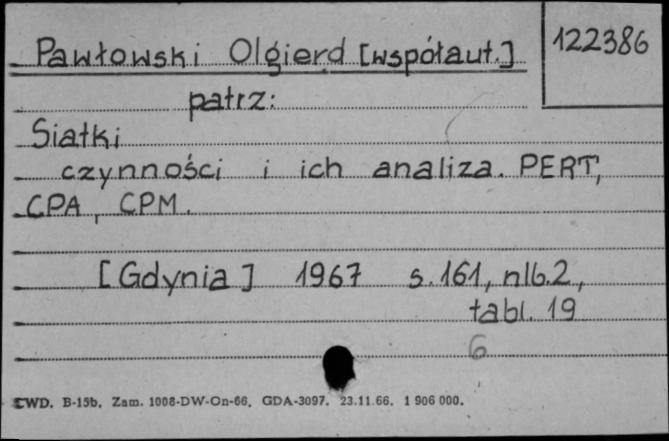 Pawłowski Olgierd [współaut.]
122386
patrz:
Siatki
czynności i ich analiza. PERT,
CPA, CPM.
[Gdynia] 1967 s. 161, nlb. 2,
tabl. 19
6
CWD. B-15b. Zam. 1008-DW-On-66. GDA-3097. 23.11.66. 1 906 000.